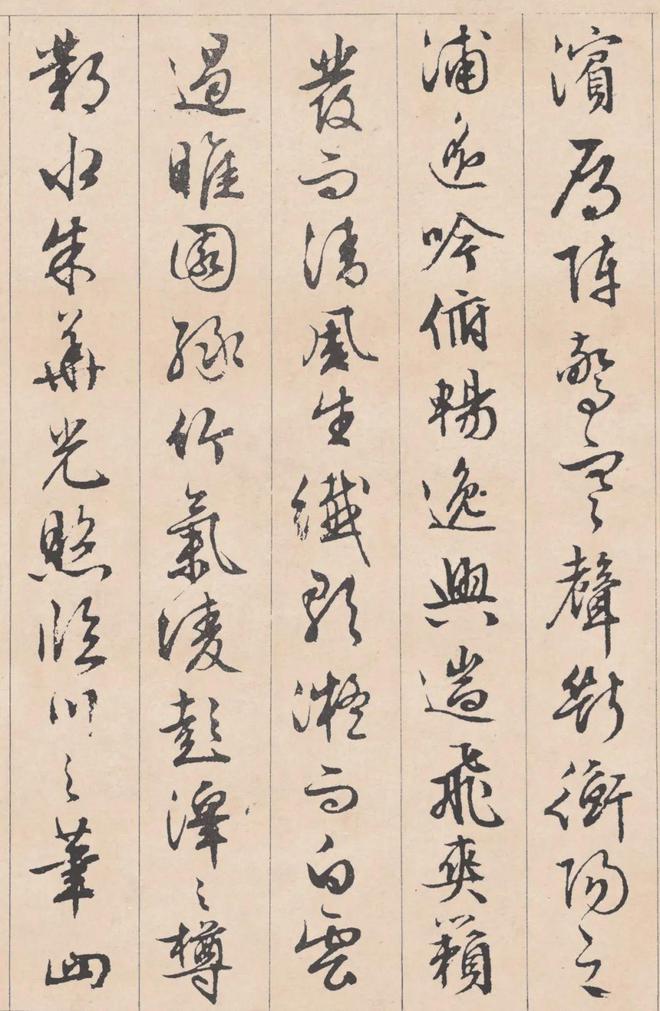 濱雁陣驚寒聲斷衡陽之
浦遙吟俯暢逸興遄飛爽籟
發而清風生纖歌凝而白雲
遏睢園綠竹氣淩彭澤之樽
鄴水朱華光照臨川之筆四